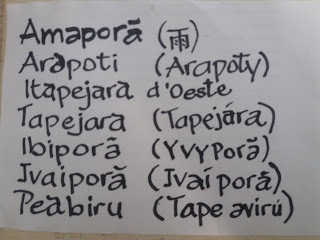 Amaporã (雨)
Arapoti (Arapoty)
Itapejara d'Oeste
Tapejara (Tapejára)
Ibiporã (Yvyporã)
Ivaiporã (Ivaí porã)
Peabiru (Tape avirú)